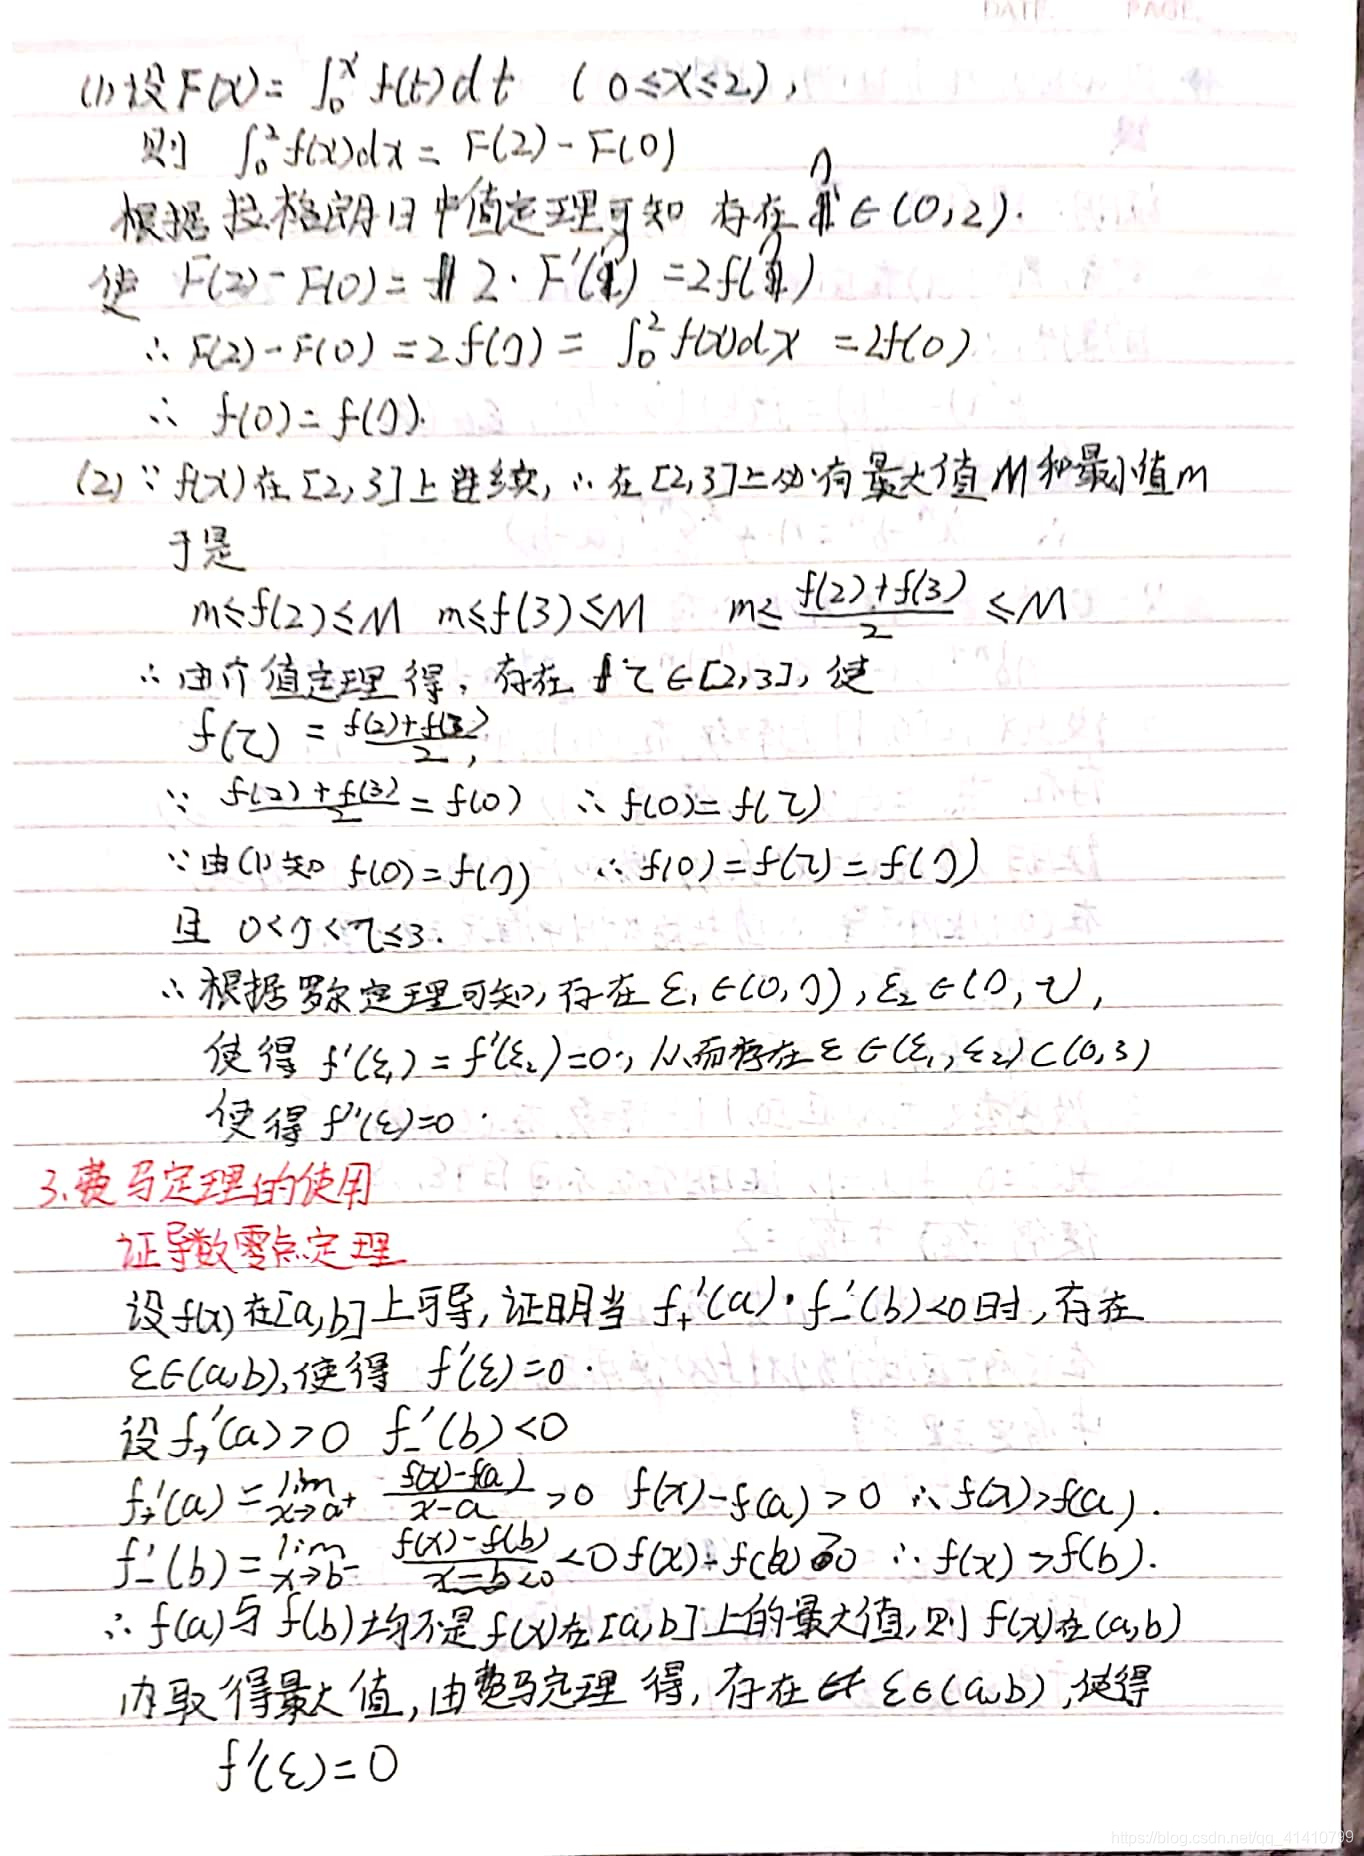 DATE PAGE
(1) 设F(x)=∫₀ˣ f(t)dt (0≤x≤2),
则 ∫₀² f(x)dx = F(2)-F(0)
根据拉格朗日中值定理可知 存在η∈(0,2).
使 F(2)-F(0)= 2·F'(η) =2f(η)
∴ F(2)-F(0) =2f(η) = ∫₀² f(x)dx =2f(0)
∴ f(0)=f(η).
(2) ∵ f(x)在[2,3]上连续,∴在[2,3]上必有最大值M和最小值m
于是
m≤f(2)≤M m≤f(3)≤M m≤(f(2)+f(3))/2 ≤M
∴由介值定理得,存在 τ∈[2,3],使
f(τ) = (f(2)+f(3))/2,
∵ (f(2)+f(3))/2 = f(0) ∴ f(0)=f(τ)
∵由(1)知 f(0)=f(η) ∴ f(0)=f(τ)=f(η)
且 0<η<τ≤3.
∴根据罗尔定理可知,存在ε₁∈(0,η),ε₂∈(η,τ),
使得 f'(ε₁)=f'(ε₂)=0,从而存在ε∈(ε₁,ε₂)⊂(0,3)
使得f''(ε)=0.
3.费马定理的使用
证导数零点定理
设f(x)在[a,b]上可导,证明当 f₊'(a)·f₋'(b)<0时,存在
ε∈(a,b),使得 f'(ε)=0.
设f₊'(a)>0 f₋'(b)<0
f₊'(a)=lim x→a⁺ (f(x)-f(a))/(x-a) >0 f(x)-f(a)>0 ∴f(x)>f(a).
f₋'(b)=lim x→b⁻ (f(x)-f(b))/(x-b<0) <0 f(x)-f(b)>0 ∴f(x)>f(b).
∴f(a)与f(b)均不是f(x)在[a,b]上的最大值,则f(x)在(a,b)
内取得最大值,由费马定理得,存在 ε∈(a,b),使得
f'(ε)=0
https://blog.csdn.net/qq_41410799